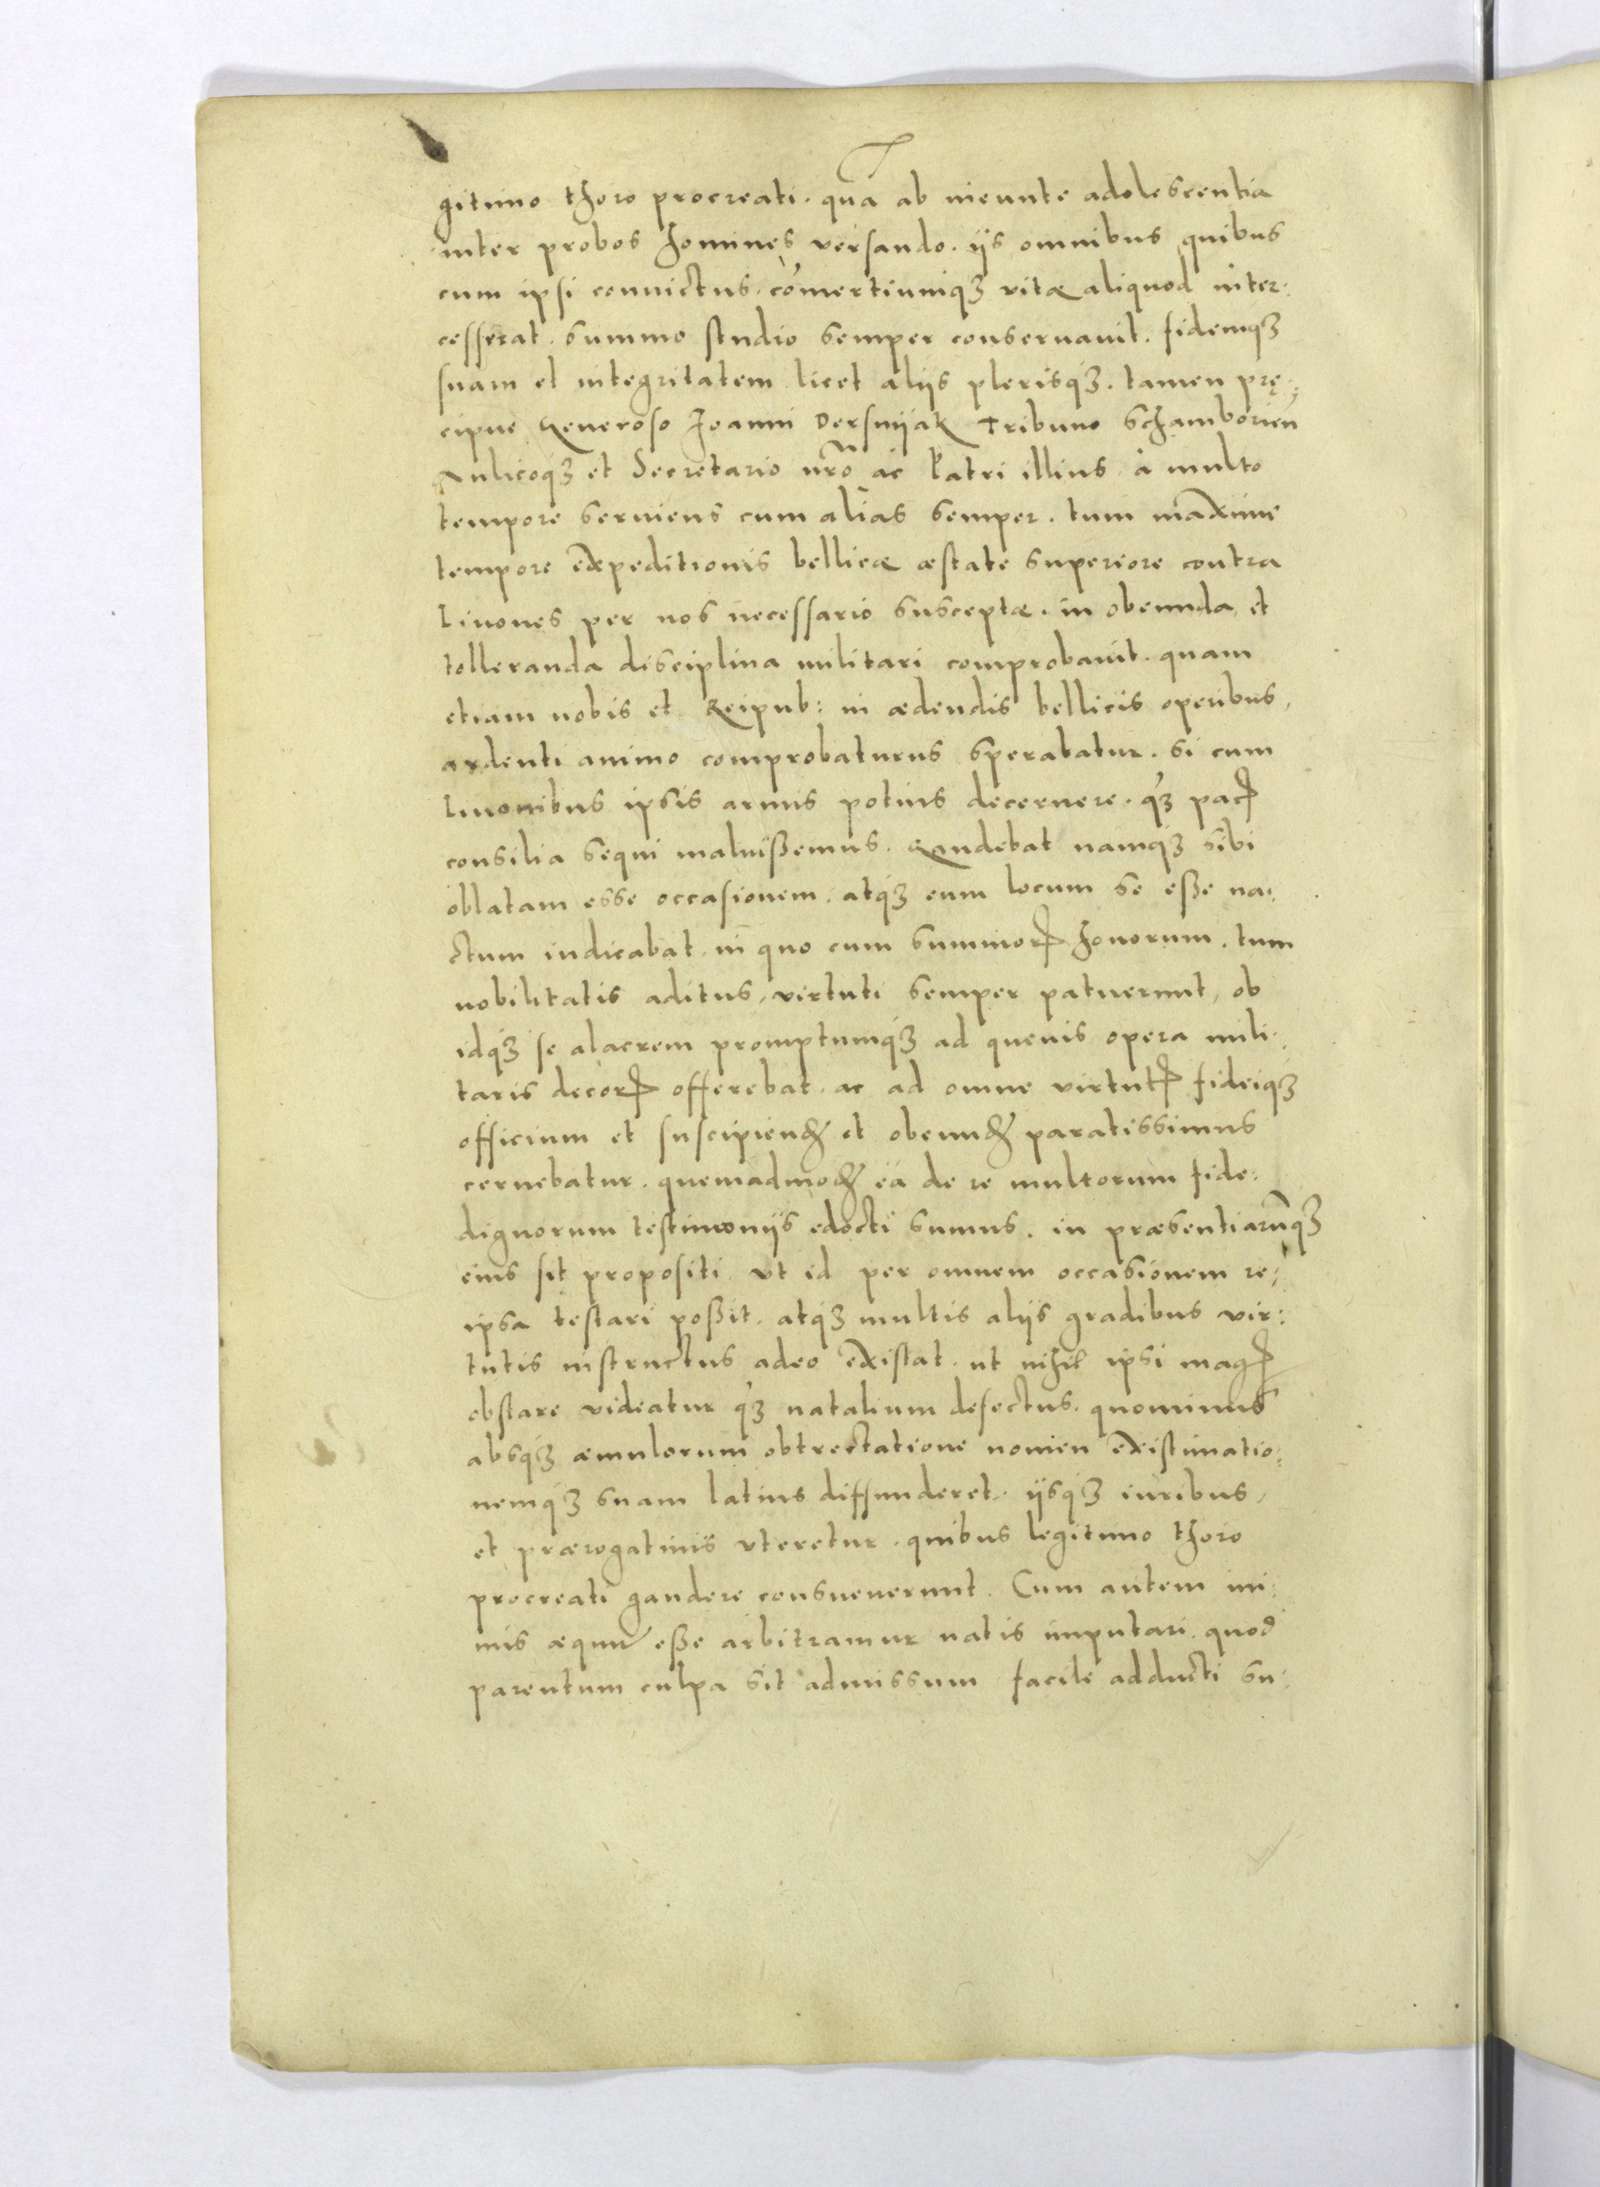 gitimo thoro procreati. qua ab ineunte adolescentia
inter probos homines versando. ijs omnibus quibus
cum ipsi convictus. com̄ertiumqȝ vitæ aliquod inter:
cesserat. summo studio semper conservavit. fidemqȝ
suam et integritatem licet aliis plerisqȝ. tamen prę:
cipue Generoso Joanni Dersnijak Tribuno Schamborien̄
Aulicoqȝ et Secretario nr̄o ac Patri illius à multo
tempore serviens cum aliàs semper. tum maxime
tempore expeditionis bellicæ æstate superiore contra
Livones per nos necessario susceptæ. in obeunda et
tolleranda disciplina militari comprobavit. quam
etiam nobis et Reipub: in ædendis bellicis operibus,
ardenti animo comprobaturus sperabatur. si cum
Livonibus ipsis armis potius decernere. qȝ pacꝭ
consilia sequi maluißemus. Gaudebat namqȝ sibi
oblatam esse occasionem. atqȝ eum locum se eße na:
ctum iudicabat. in quo cum summorꝭ honorum. tum
nobilitatis aditus, virtuti semper patuerunt, ob
idqȝ se alacrem promptumqȝ ad quevis opera mili:
taris decorꝭ offerebat. ac ad omne virtutꝭ fideiqȝ
officium et suscipienđ et obeunđ paratissimus
cernebatur. quemadmođ ea de re multorum fide:
dignorum testimoniis edocti sumus. in præsentiarūqȝ
eius sit propositi vt id per omnem occasionem re:
ipsa testari poßit. atqȝ multis aliis gradibus vir:
tutis instructus adeo existat. ut nihil ipsi magꝭ
obstare videatur qȝ natalium defectus. quominus
absqȝ æmulorum obtrectatione nomen existimatio:
nemqȝ suam latius diffunderet. ijsqȝ iuribus,
et prærogativis vteretur. quibus legitimo thoro
procreati gaudere consueverunt. Cum autem ini:
mis æquū eße arbitramur natis imputari. quod
parentum culpa sit admissum facile adducti su: